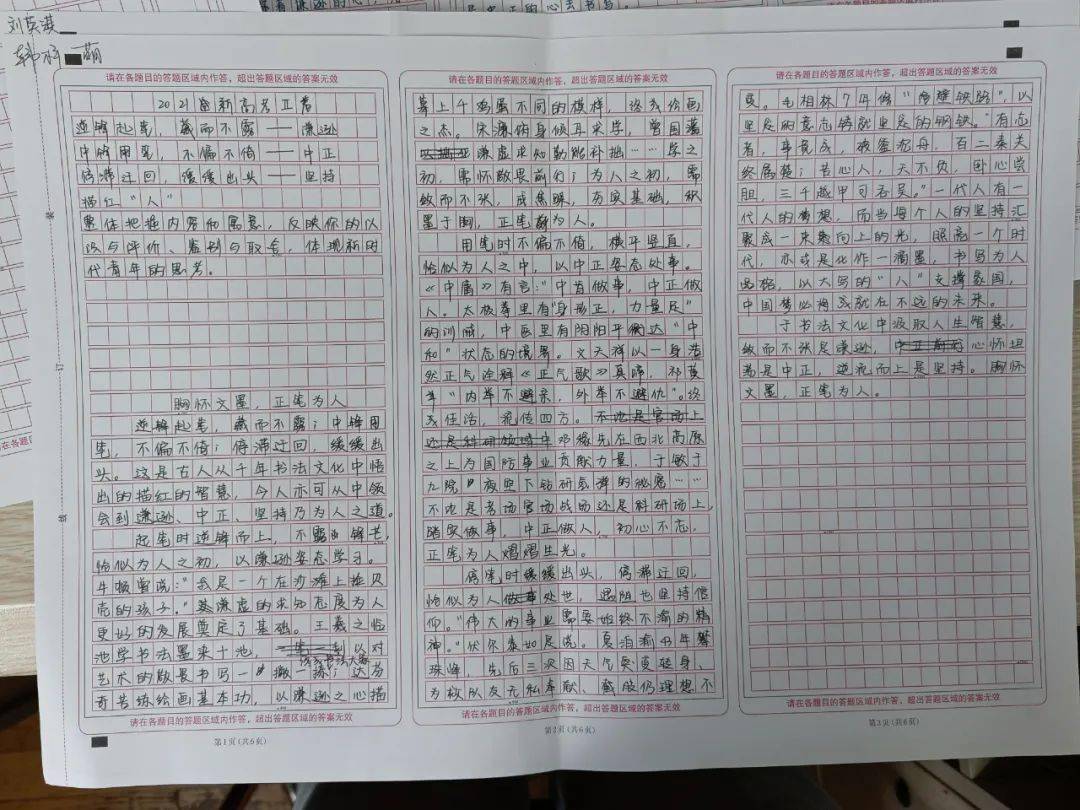 刘英淇
韩梓萌
请在各题目的答题区域内作答，超出答题区域的答案无效
2021届新高考Ⅱ卷
逆锋起笔，藏而不露——谦逊
中锋用笔，不偏不倚——中正
停滞迂回，缓缓出头——坚持
描红“人”
整体把握内容和寓意，反映你的认
识与评价、鉴别与取舍，体现新时
代青年的思考。
胸怀文墨，正笔为人
逆锋起笔，藏而不露；中锋用
笔，不偏不倚；停滞迂回，缓缓出
头。这是古人从千年书法文化中悟
出的描红的智慧，今人亦可从中领
会到谦逊、中正、坚持乃为人之道。
起笔时逆锋而上，不露锋芒，
恰似为人之初，以谦逊姿态学习。
牛顿曾说：“我是一个在沙滩上捡贝
壳的孩子。”其谦虚的求知态度为人
更好的发展奠定了基础。王羲之临
池学书法墨染十池，以对
成书法大家
艺术的敬畏书写一“撇一捺”；达芬
奇苦练绘画基本功，以谦逊之心描
请在各题目的答题区域内作答，超出答题区域的答案无效
第1页(共6页)
请在各题目的答题区域内作答，超出答题区域的答案无效
摹上千鸡蛋不同的模样，终成绘画
之杰。宋濂俯身倾耳求学，曾国藩
谦虚求知勤能补拙……学之
初，需怀敬畏前行；为人之初，需
敛而不张，戒焦躁，夯实基础，积
墨于胸，正笔为人。
用笔时不偏不倚，横平竖直，
恰似为人之中，以中正姿态处事。
《中庸》有言：“中省做事，中正做
人。太极拳里有“身形正，力量足”
的训诫，中医里有阴阳平衡达“中
和”状态的境界。文天祥以一身浩
然正气诠释《正气歌》真谛，祁黄
羊“内举不避亲，外举不避仇”。终
成佳话，流传四方。
邓稼先在西北高原
之上为国防事业贡献力量，于敏于
九院夜空下钻研氢弹的秘密……
不论是考场官场战场还是科研场上，
踏实做事，中正做人，初心不忘，
正笔为人熠熠生光。
停笔时缓缓出头，停滞迂回，
恰似为人处世，遇阻也坚持信
仰。“伟大的事业需要始终不渝的精
神。”伏尔泰如是说。夏泊渝43年攀
珠峰，先后三次因天气突变转身、
为救队友无私奉献、截肢仍理想不
请在各题目的答题区域内作答，超出答题区域的答案无效
第2页(共6页)
请在各题目的答题区域内作答，超出答题区域的答案无效
变。毛相林7年修“绝壁铁路”，以
坚定的意志铸就坚定的钢铁。“有志
者，事竟成，破釜沉舟，百二秦关
终属楚；苦心人，天不负，卧心尝
胆，三千越甲可吞吴。”一代人有一
代人的梦想，而当每个人的坚持汇
聚成一束向上的光，照亮一个时
代，亦或是化作一滴墨，书写为人
出路，以大写的“人”支撑家国，
中国梦必将成就在不远的未来。
于书法文化中汲取人生智慧，
敛而不张是谦逊，心怀坦
荡是中正，逆流而上是坚持。胸怀
文墨，正笔为人。
请在各题目的答题区域内作答，超出答题区域的答案无效
第3页(共6页)